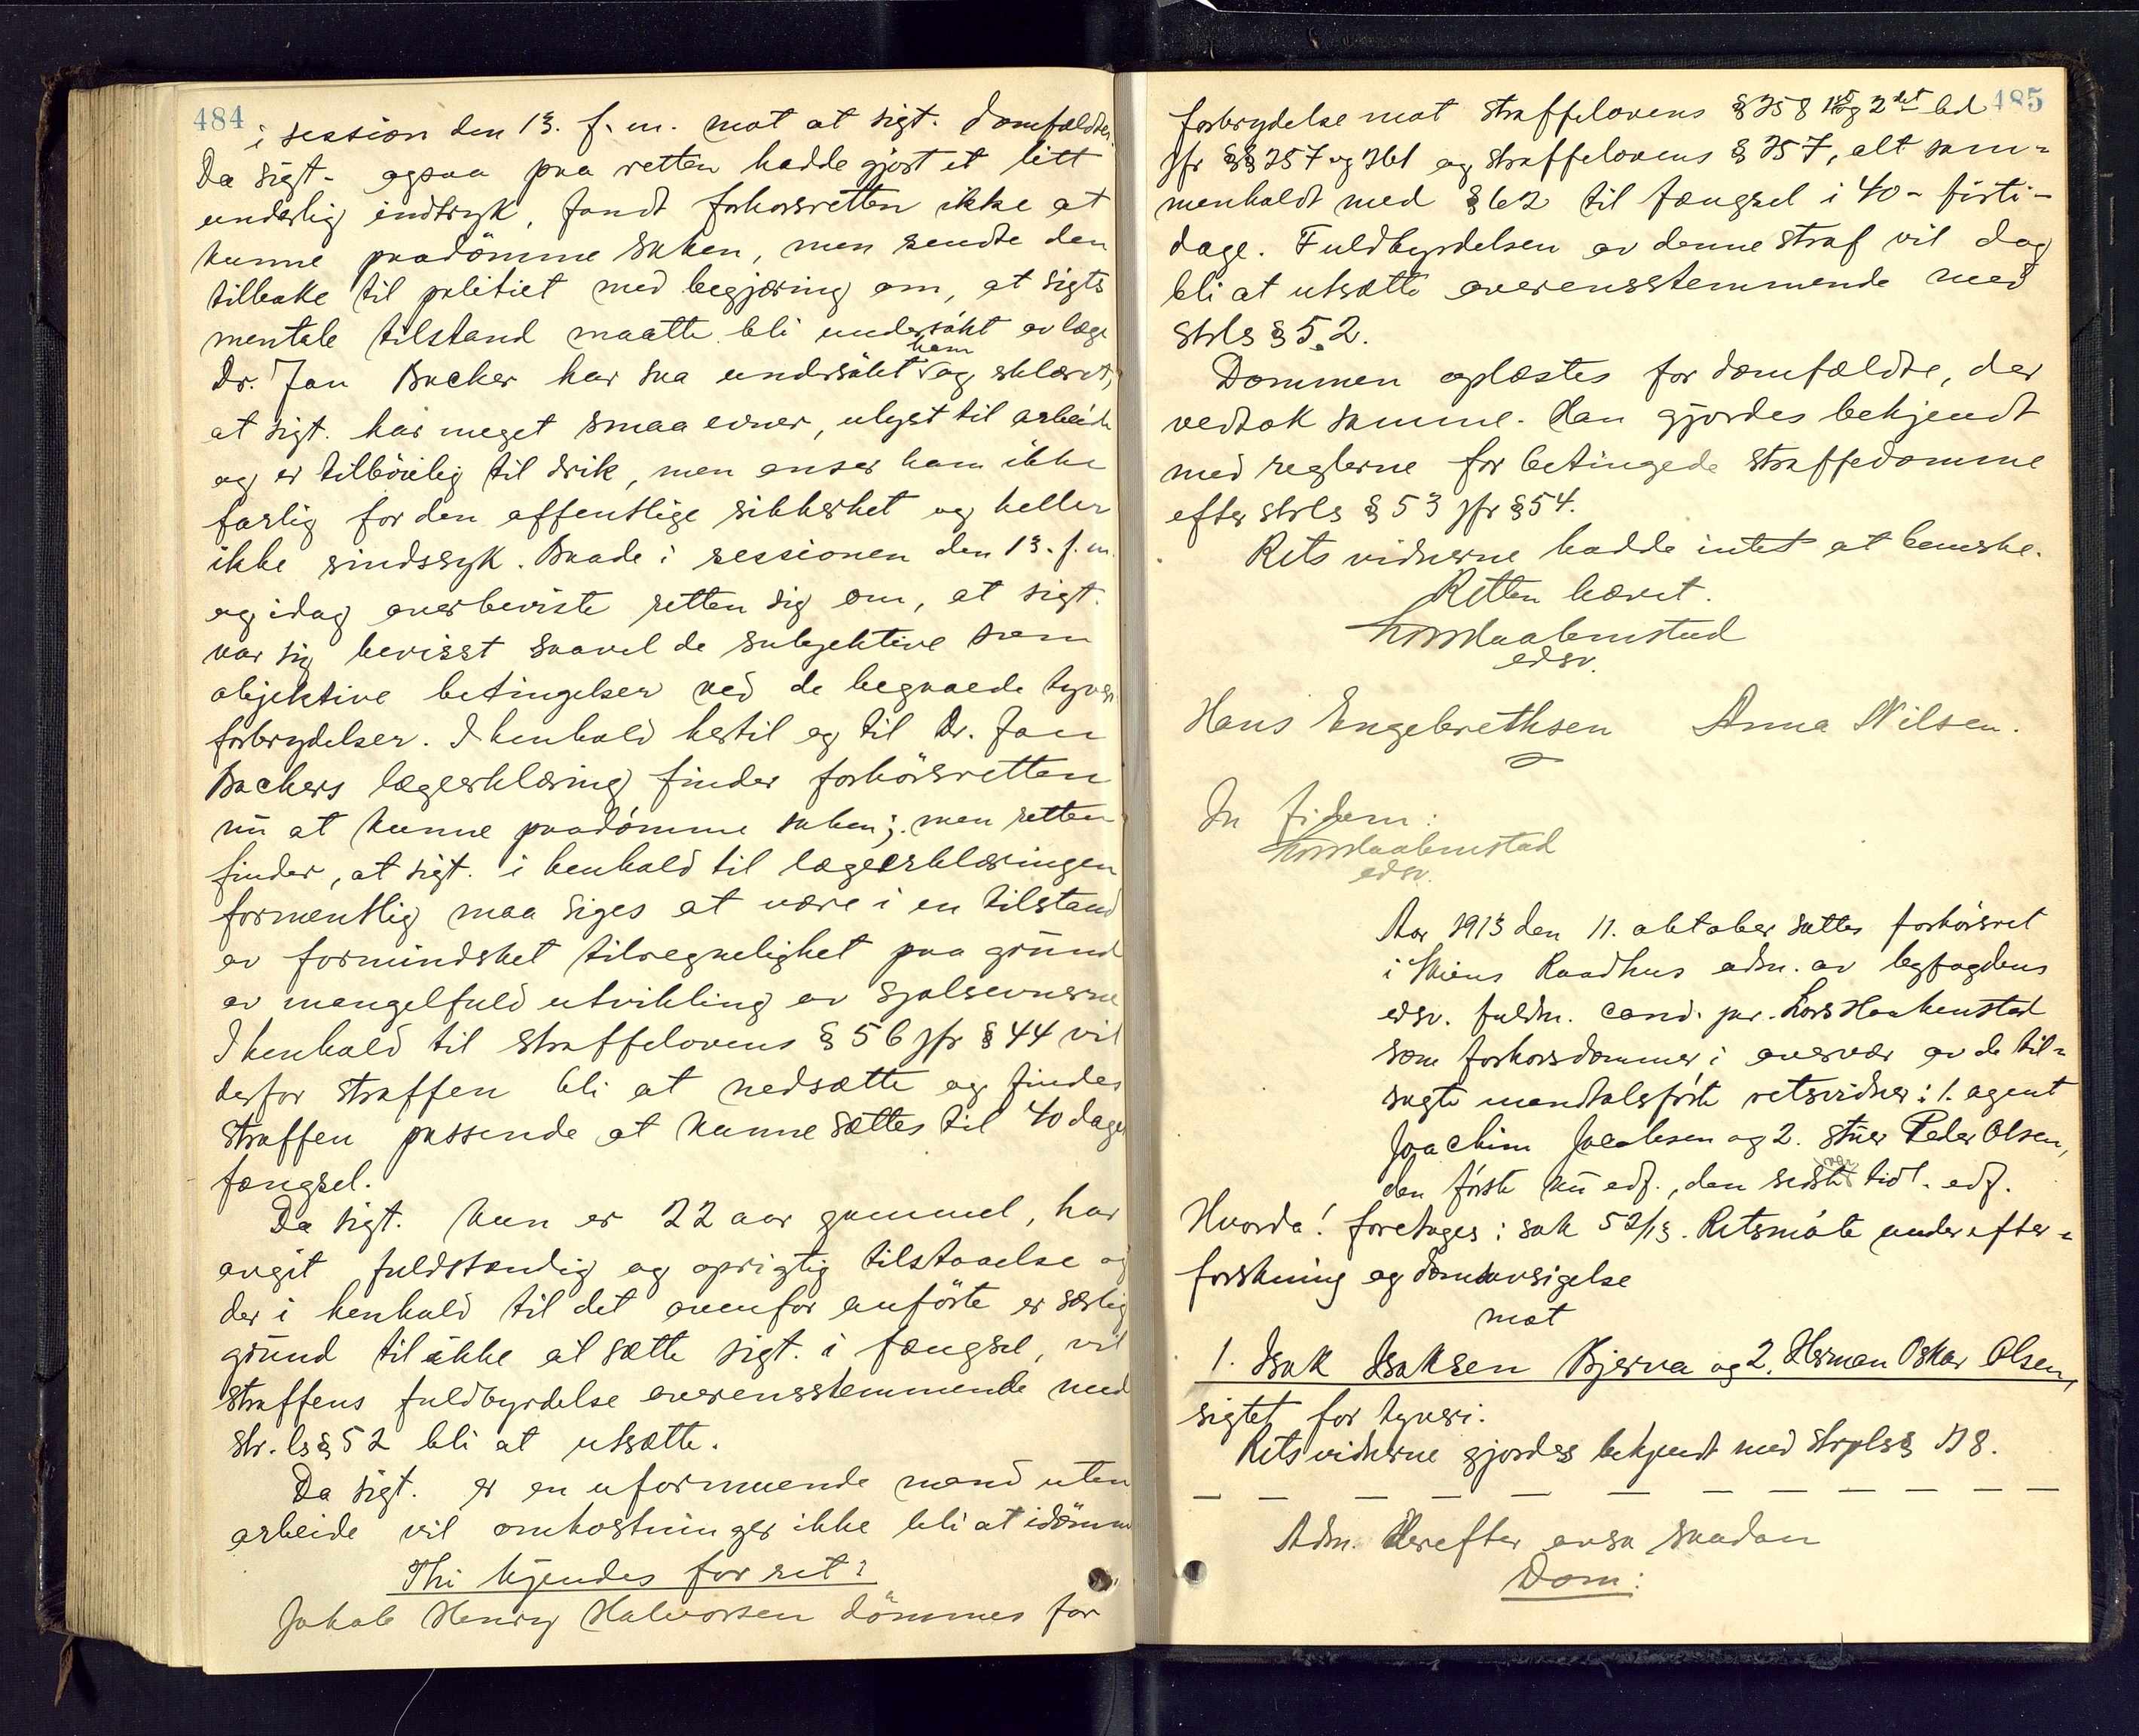 484
i session den 13. f.m. mot at sigt. domfældtes.
Da sigt. ogsaa paa retten hadde gjort et litt
underlig indtryk, fandt forhørsretten ikke at
kunne paadömme saken, men sendte den
tilbake til politiet med begjæring om, at sigts
mentale tilstand maatte bli undersökt av læge
Dr. Jan Backer har saa undersökt ham og erklæret,
at sigt. har meget smaa evner, ulyst til arbeide
og er tilböielig til drik, men anser ham ikke
farlig for den offentlige sikkerhet og heller
ikke sindssyk. Baade i sessionen den 13. f.m.
og idag overbeviste retten sig om, at sigt.
var sig bevisst saavel de subjektive som
objektive betingelser ved de begaaede tyveri
forbrydelser. I henhold hertil og til Dr. Jan
Backers lægeerklæring finder forhörsretten
nu at kunne paadömme saken; men retten
finder, at sigt. i henhold til lægeerklæringen
formentlig maa siges at være i en tilstand
av formindsket tilregnelighet paa grund
av mangelfuld utvikling av sjælsevnerne
I henhold til straffelovens § 56 jfr § 44 vil
derfor straffen bli at nedsætte og findes
straffen passende at kunne sættes til 40 dages
fængsel.
Da sigt. kun er 22 aar gammel, har
avgit fuldstændig og oprigtig tilstaaelse og
der i henhold til det ovenfor anförte er særlig
grund til ikke at sætte sigt. i fængsel, vil
straffens fuldbyrdelse overensstemmende med
str.ls § 52 bli at utsætte.
Da sigt. er en uformuende mand uten
arbeide vil omkostninger ikke bli at idömme
Thi kjendes for ret:
Jakob Henry Halvorsen dömmes for
485
forbrydelse mot straffelovens § 258 1ste og 2det led
jfr §§ 257 og 261 og straffelovens § 257, alt sam=
menholdt med § 62 til fængsel i 40 - firti -
dage. Fuldbyrdelsen av denne straf vil dog
bli at utsætte overensstemmende med
strls § 52.
Dommen oplæstes for domfældte, der
vedtok samme. Han gjordes bekjendt
med reglerne for betingede straffedomme
efter strls § 53 jfr § 54.
Rets vidnerne hadde intet at bemerke.
Retten hævet.
Lors Haakenstad
edsv.
Hans Engebrethsen Anna Nilsen.
In fidem:
Lors Haakenstad
edsv.
Aar 1913 den 11. oktober sattes forhörsret
i Skiens Raadhus adm. av byfogdens
edsv. fuldm. cand. jur. Lors Haakenstad
som forhörsdommer i overvær av de til=
sagte mandtalsförte retsvidner: 1. agent
Joachim Jacobsen og 2. stuer Peder Olsen,
den förste nu edf., den sidste var tidl. edf.
Hvorda! foretages: sak 52/13. Retsmöte under efter=
forskning og domsavsigelse
mot
1. Isak Isaksen Bjerva og 2. Herman Oskar Olsen,
sigtet for tyveri.
Rets vidnerne gjordes bekjendt med Strpls § 118.
Adm. Derefter avsa saadan
Dom: